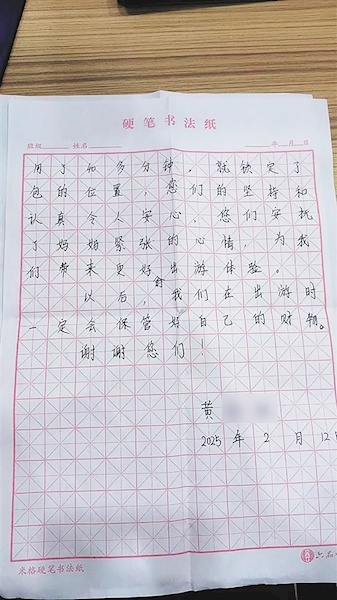 硬笔书法纸
班级 姓名 年 月 日
用了40多分钟，就锁定了
包的位置，您们的坚持和
认真令人安心，您们安抚
了妈妈紧张的心情，为我
们带来更好的出游体验。
以后，我们在出游时
一定会保管好自己的财物。
谢谢您们！
黄
2025年2月12日
米格硬笔书法纸
六品